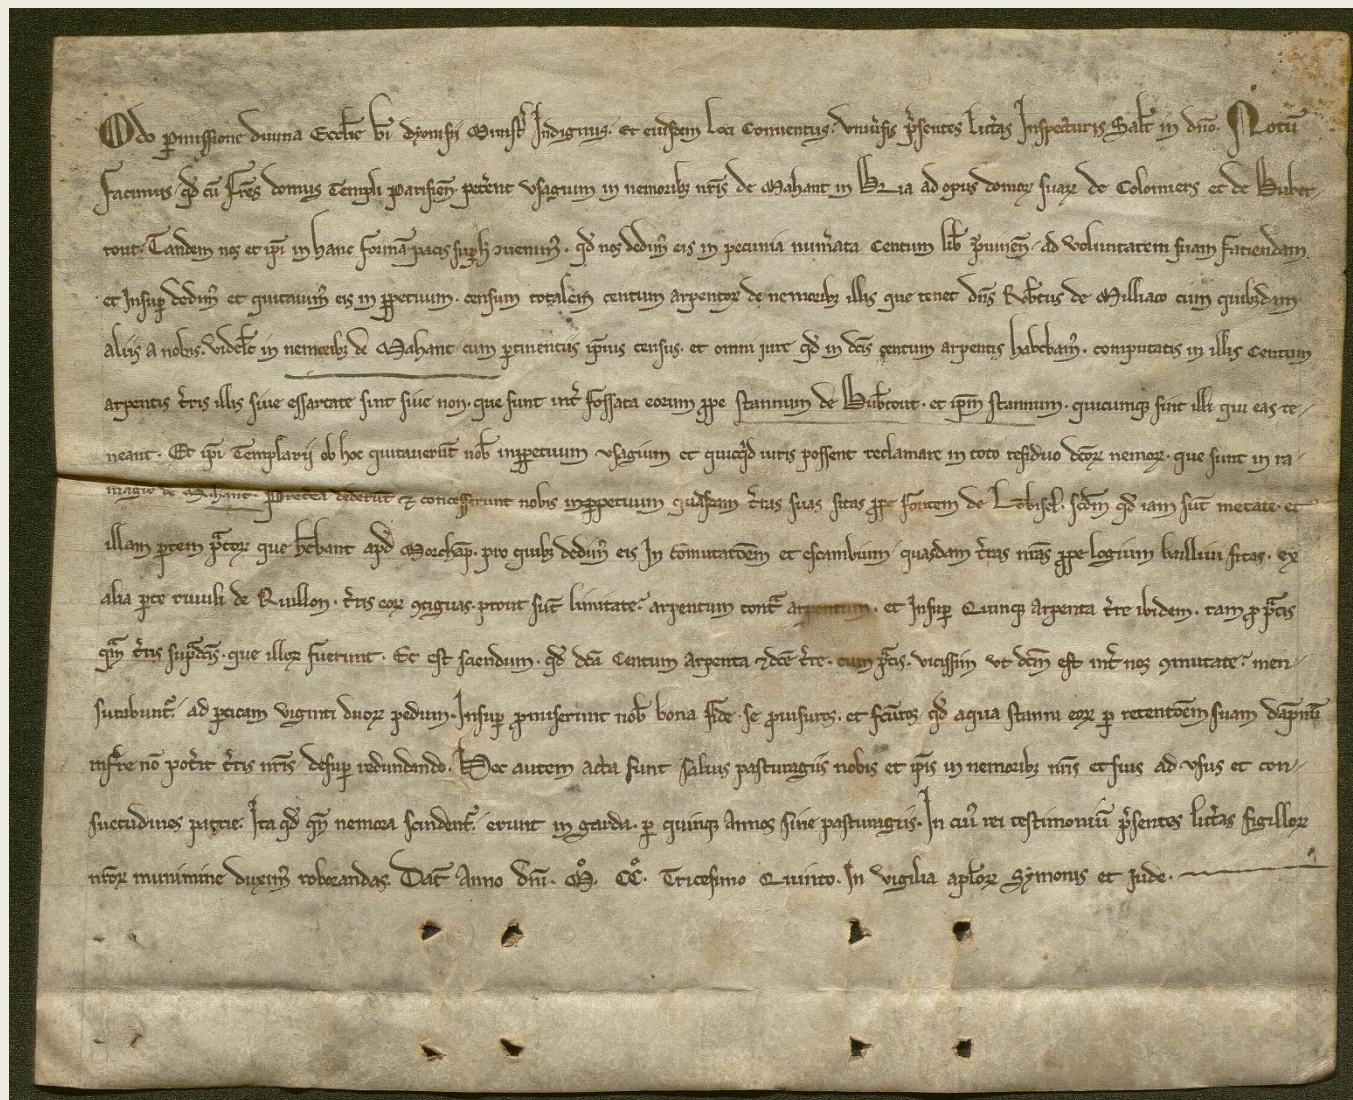 Odo p̱missione diuina Eccl̄ie bī dyonisii Ministr̉ Indignus. et eiusdem loci Conuentus. Vniu̓sis p̓sentes litt̓as Inspecturis Salt̄ in dn̄o. Notū
facimus qd̓ cū fr̄es domus Templi parisien̄. pet̓ent vsagium in nemoribꝫ nr̄is de Mahant in Bria ad opus domoꝝ suaꝝ de Colomiers et de Huber-
tout. Tandem nos et ip̄i in hanc formā pacis suꝑ h̓ ꝯuenim᷒. qd̓ nos dedim᷒ eis in pecunia num̓ata Centum lib̄ p̓uinien̄. ad voluntatem suam faciendam
et Insuꝑ dedim᷒ et quitauim᷒ eis in ꝑpetuum. censum totalem centum arpentoꝝ de nemoribꝫ illis que tenet dn̄s Rob̄tus de Milliaco cum quibꝫdam
aliis a nobis. videlic̄ in nemoribꝫ de Mahant cum ꝑtinentiis ip̄ius census. et omni iure qd̓ in dc̄is centum arpentis habebam᷒. computatis in illis Centum
arpentis t̓ris illis siue essartate sint siue non. que sunt int̓ fossata eorum ꝓpe stannum de Hub̄tout. et ip̄m stannum. quicumqꝫ sint illi qui eas te-
neant. Et ip̄i Templarii ob hoc quitauerūt nob̄ inꝑpetuum vsagium et quicq̓d iuris possent reclamare in toto residuo dc̄oꝝ nemoꝝ. que sunt in ra-
magio de Mahant. Preterea dederūt et concesserunt nobis inꝑpetuum quasdam t̓ras suas sitas ꝓpe fontem de Lōbisel. scd̄m qd̓ iam sūt metate. et
illam ꝑtem p̓toꝝ que hēbant apd̓ Morchāp. pro quibꝫ dedim᷒ eis In cōmutatōem et escambium quasdam t̓ras nr̄as ꝓpe logium balliui sitas. ex
alia ꝑte riuuli de Ruillon. t̓ris eoꝝ ꝯtiguas. prout sūt limitate. arpentum cont̓ arpentum. et Insuꝑ Quinqꝫ arpenta t̓re ibidem. tam ꝓ p̓tis
qm̓ t̓ris sup̓dc̄is. que illoꝝ fuerunt. Et est sciendum. qd̓ dc̄a Centum arpenta ⁊ dc̄e t̓re. cum p̓tis. vicissim vt dc̄m est int̓ nos ꝯmutate. men-
surabunt̓. ad ꝑticam viginti duoꝝ pedum. Insuꝑ ꝓmiserunt nob̄ bona fide se ꝓuisuros. et fc̄uros qd̓ aqua stanni eoꝝ ꝑ retentōem suam dāpnū
infr̓re nō pot̓it t̓ris nr̄is desuꝑ redundando. Hec autem acta sunt saluis pasturagiis nobis et ip̄is in nemoribꝫ nr̄is et suis ad vsus et con-
suetudines patrie. Ita qd̓ qn̄ nemora scindent̓. erunt in garda. ꝑ quinqꝫ Annos sine pasturagiis. In cui᷒ rei testimoniū p̓sentes litt̓as sigilloꝝ
nr̄oꝝ munimine duxim᷒ roborandas. Dat̄ Anno dn̄i. Mͦ. CCͦ. Tricesimo Quinto. In vigilia apl̄oꝝ Symonis et Iude.